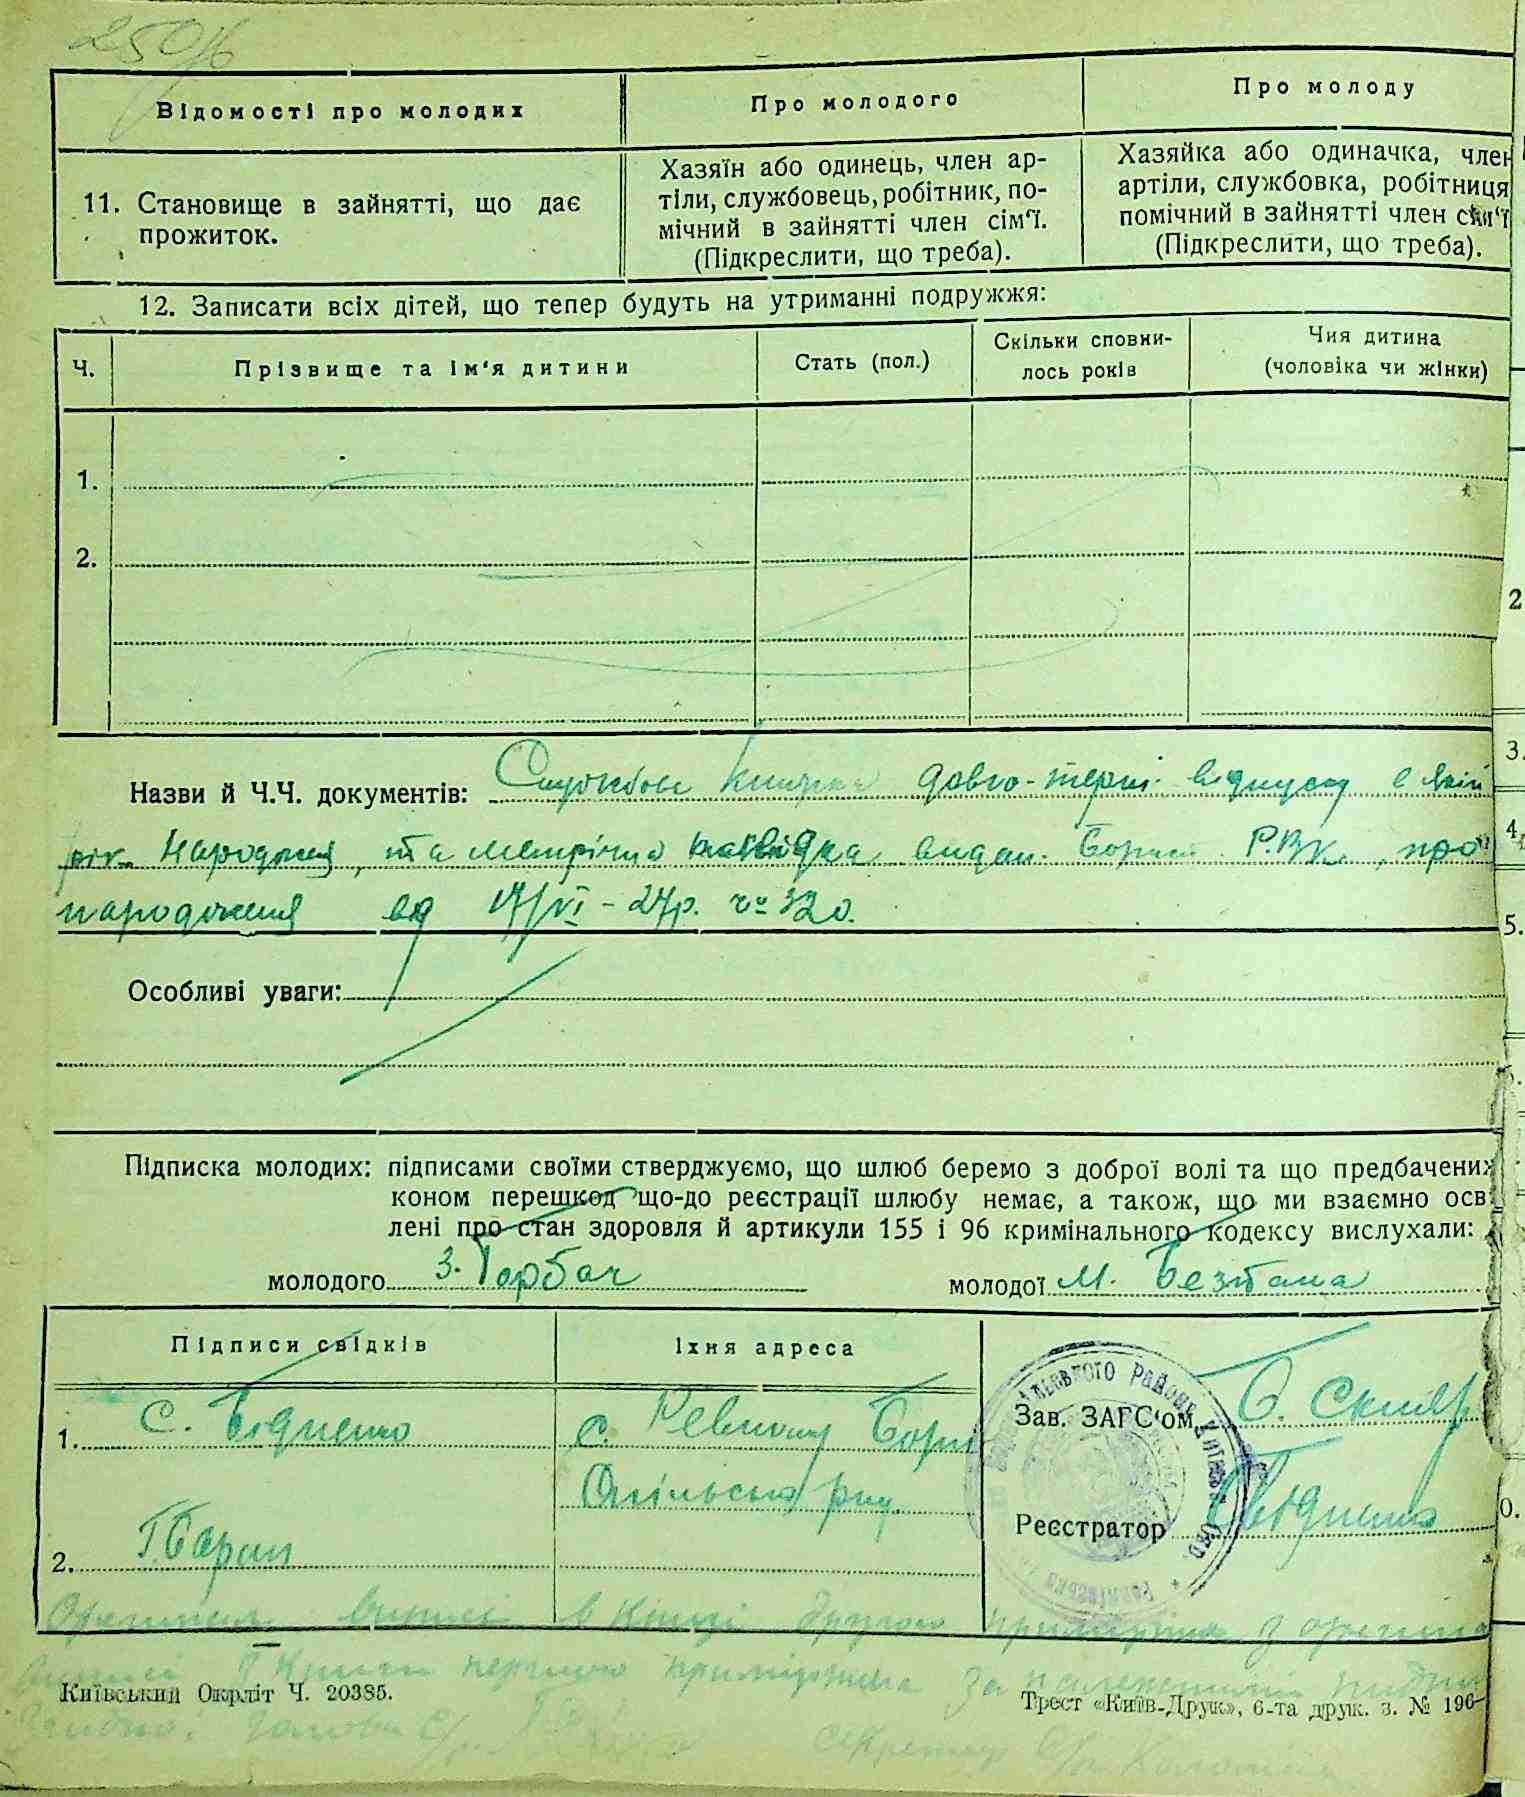 250
Відомості про молодих
Про молодого
Про молоду
11. Становище в зайнятті, що дає
прожиток.
Хазяїн або одинець, член ар-
тіли, службовець, робітник, по-
мічний в зайнятті член сім‘ї.
(Підкреслити, що треба).
Хазяйка або одиначка, член
артіли, службовка, робітниця
помічний в зайнятті член сім‘ї
(Підкреслити, що треба).
12. Записати всіх дітей, що тепер будуть на утриманні подружжя:
Ч.
Прізвище та ім‘я дитини
Стать (пол.)
Скільки сповни-
лось років
Чия дитина
(чоловіка чи жінки)
1.
2.
Назви й Ч.Ч. документів: Службова книжка довго-терм. відпуск є який
рік народження, та метрична посвідка видан. Борисп. Р.В.К., про
народження від 17/VI-27р. ч. 320.
Особливі уваги:
Підписка молодих: підписами своїми стверджуємо, що шлюб беремо з доброї волі та що предбачених
коном перешкод що-до реєстрації шлюбу немає, а також, що ми взаємно осв
лені про стан здоровля й артикули 155 і 96 кримінального кодексу вислухали:
молодого З. Горбач
молодої М.
Підписи свідків
Їхня адреса
1. С. Бідненко
с. Ревному
2. Г. Баран
Зав. ЗАГС‘ом
Реєстратор
в кінці другого примірника з
першого примірника за
Київський Окрліт Ч. 20385.
Трест «Київ-Друк», 6-та друк. з. № 196-
Згідно: Голова
секретар
2
3.
4.
5.
0.